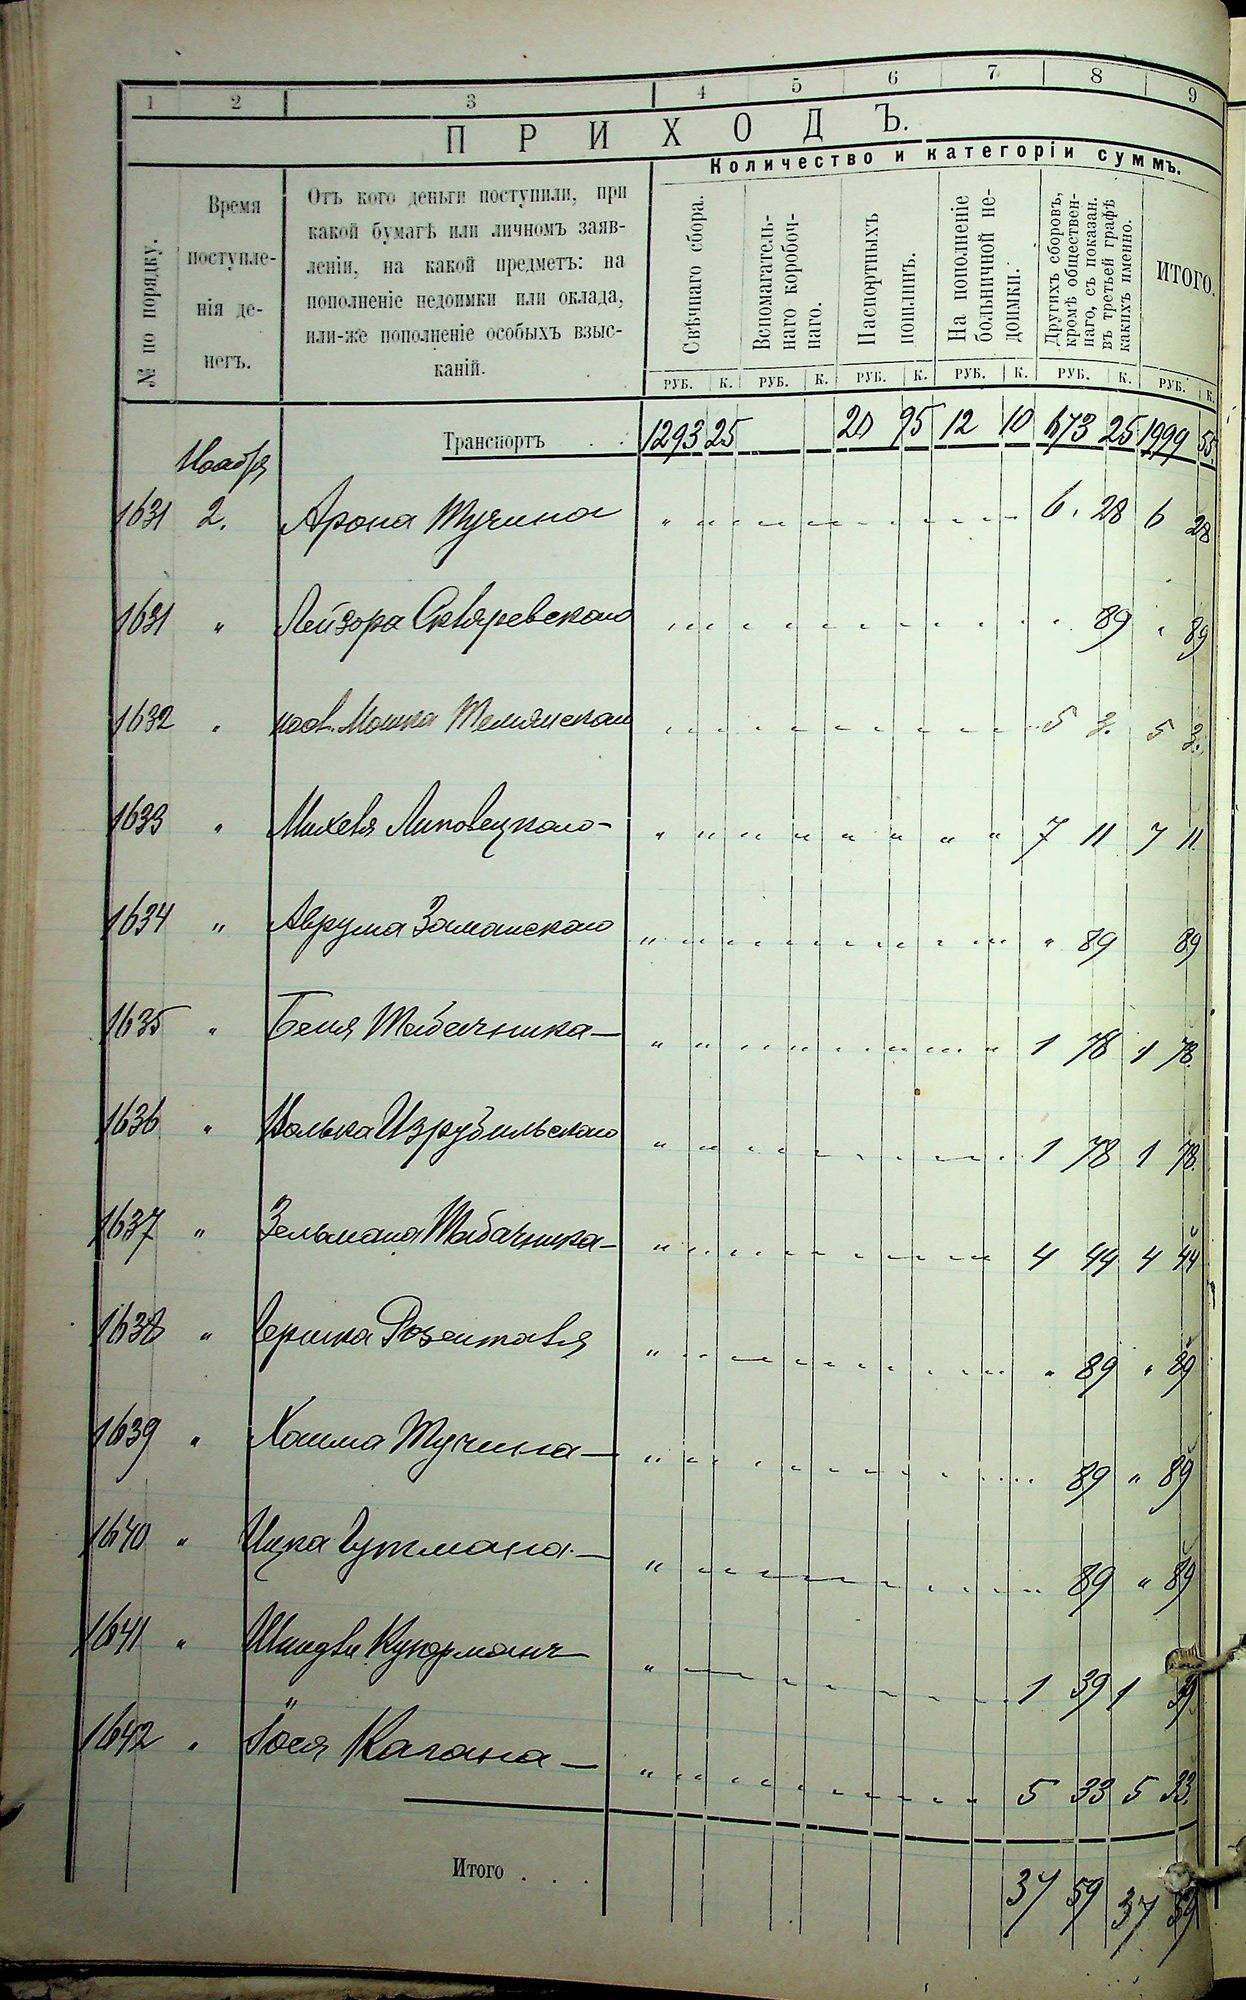 1 2 3 4 5 6 7 8 9
ПРИХОДЪ.
Количество и категоріи суммъ.
№ по порядку.
Время
поступле-
нія де-
негъ.
Отъ кого деньги поступили, при
какой бумагѣ или личномъ заяв-
леніи, на какой предметъ: на
пополненіе недоимки или оклада,
или-же пополненіе особыхъ взыс-
каній.
Свѣчнаго сбора.
Вспомагатель-
наго коробоч-
наго.
Паспортныхъ
пошлинъ.
На пополненіе
больничной не-
доимки.
Другихъ сборовъ,
кромѣ обществен-
наго, съ показан.
въ третьей графѣ
какихъ именно.
ИТОГО.
РУБ. К. РУБ. К. РУБ. К. РУБ. К. РУБ. К. РУБ. К.
Транспортъ . . 1293 25 20 95 12 10 673 25 1999 55
Ноября
1631 2. Арона Тучина " " " 6. 28 6 28
1631 " Лейзора Скверевскаго " " " 89 " 89
1632 " Мошка " " " 5 3. 5 3.
1633 " Михеля Липовецкаго - " " " 7 11 7 11
1634 " Аврума Заманскаго " " " 89 89
1635 " Беня Табачника — " " " 1 78 1 78
1636 " Волька " " " 1 78 1 78.
1637 " Зельмана Табачника - " " " 4 44 4 44
1638 " Гершка " " " 89 " 89
1639 " Хаима Тучина — " " " 89 " 89
1640 " Ицка Гутмана — " " " 89 " 89
1641 " " " 1 39 1 39
1642 " Іося Кагана — " " " 5 33 5 33.
Итого . . . 37 59 37 59